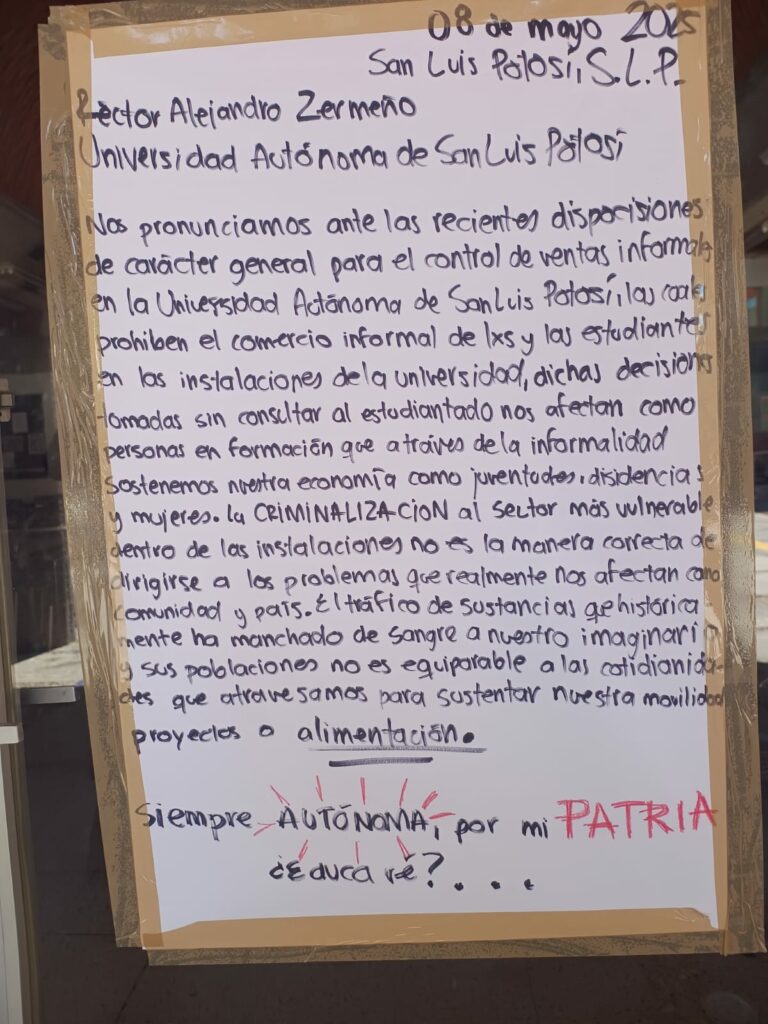 08 de mayo 2025
San Luis Potosí, S.L.P.
Rector Alejandro Zermeño
Universidad Autónoma de San Luis Potosí
Nos pronunciamos ante las recientes disposiciones
de carácter general para el control de ventas informales
en la Universidad Autónoma de San Luis Potosí, las cuales
prohiben el comercio informal de lxs y las estudiantes
en las instalaciones de la universidad, dichas decisiones
tomadas sin consultar al estudiantado nos afectan como
personas en formación que a tráves de la informalidad
sostenemos nuestra economía como juventudes, disidencias
y mujeres. la CRIMINALIZACION al sector más vulnerable
dentro de las instalaciones no es la manera correcta de
dirigirse a los problemas que realmente nos afectan como
comunidad y país. El tráfico de sustancias qe histórica
mente ha manchado de sangre a nuestro imaginario
y sus poblaciones no es equiparable a las cotidianida-
des que atravesamos para sustentar nuestra movilidad
proyectos o alimentación.
siempre AUTÓNOMA, por mi PATRIA
¿Educaré?...